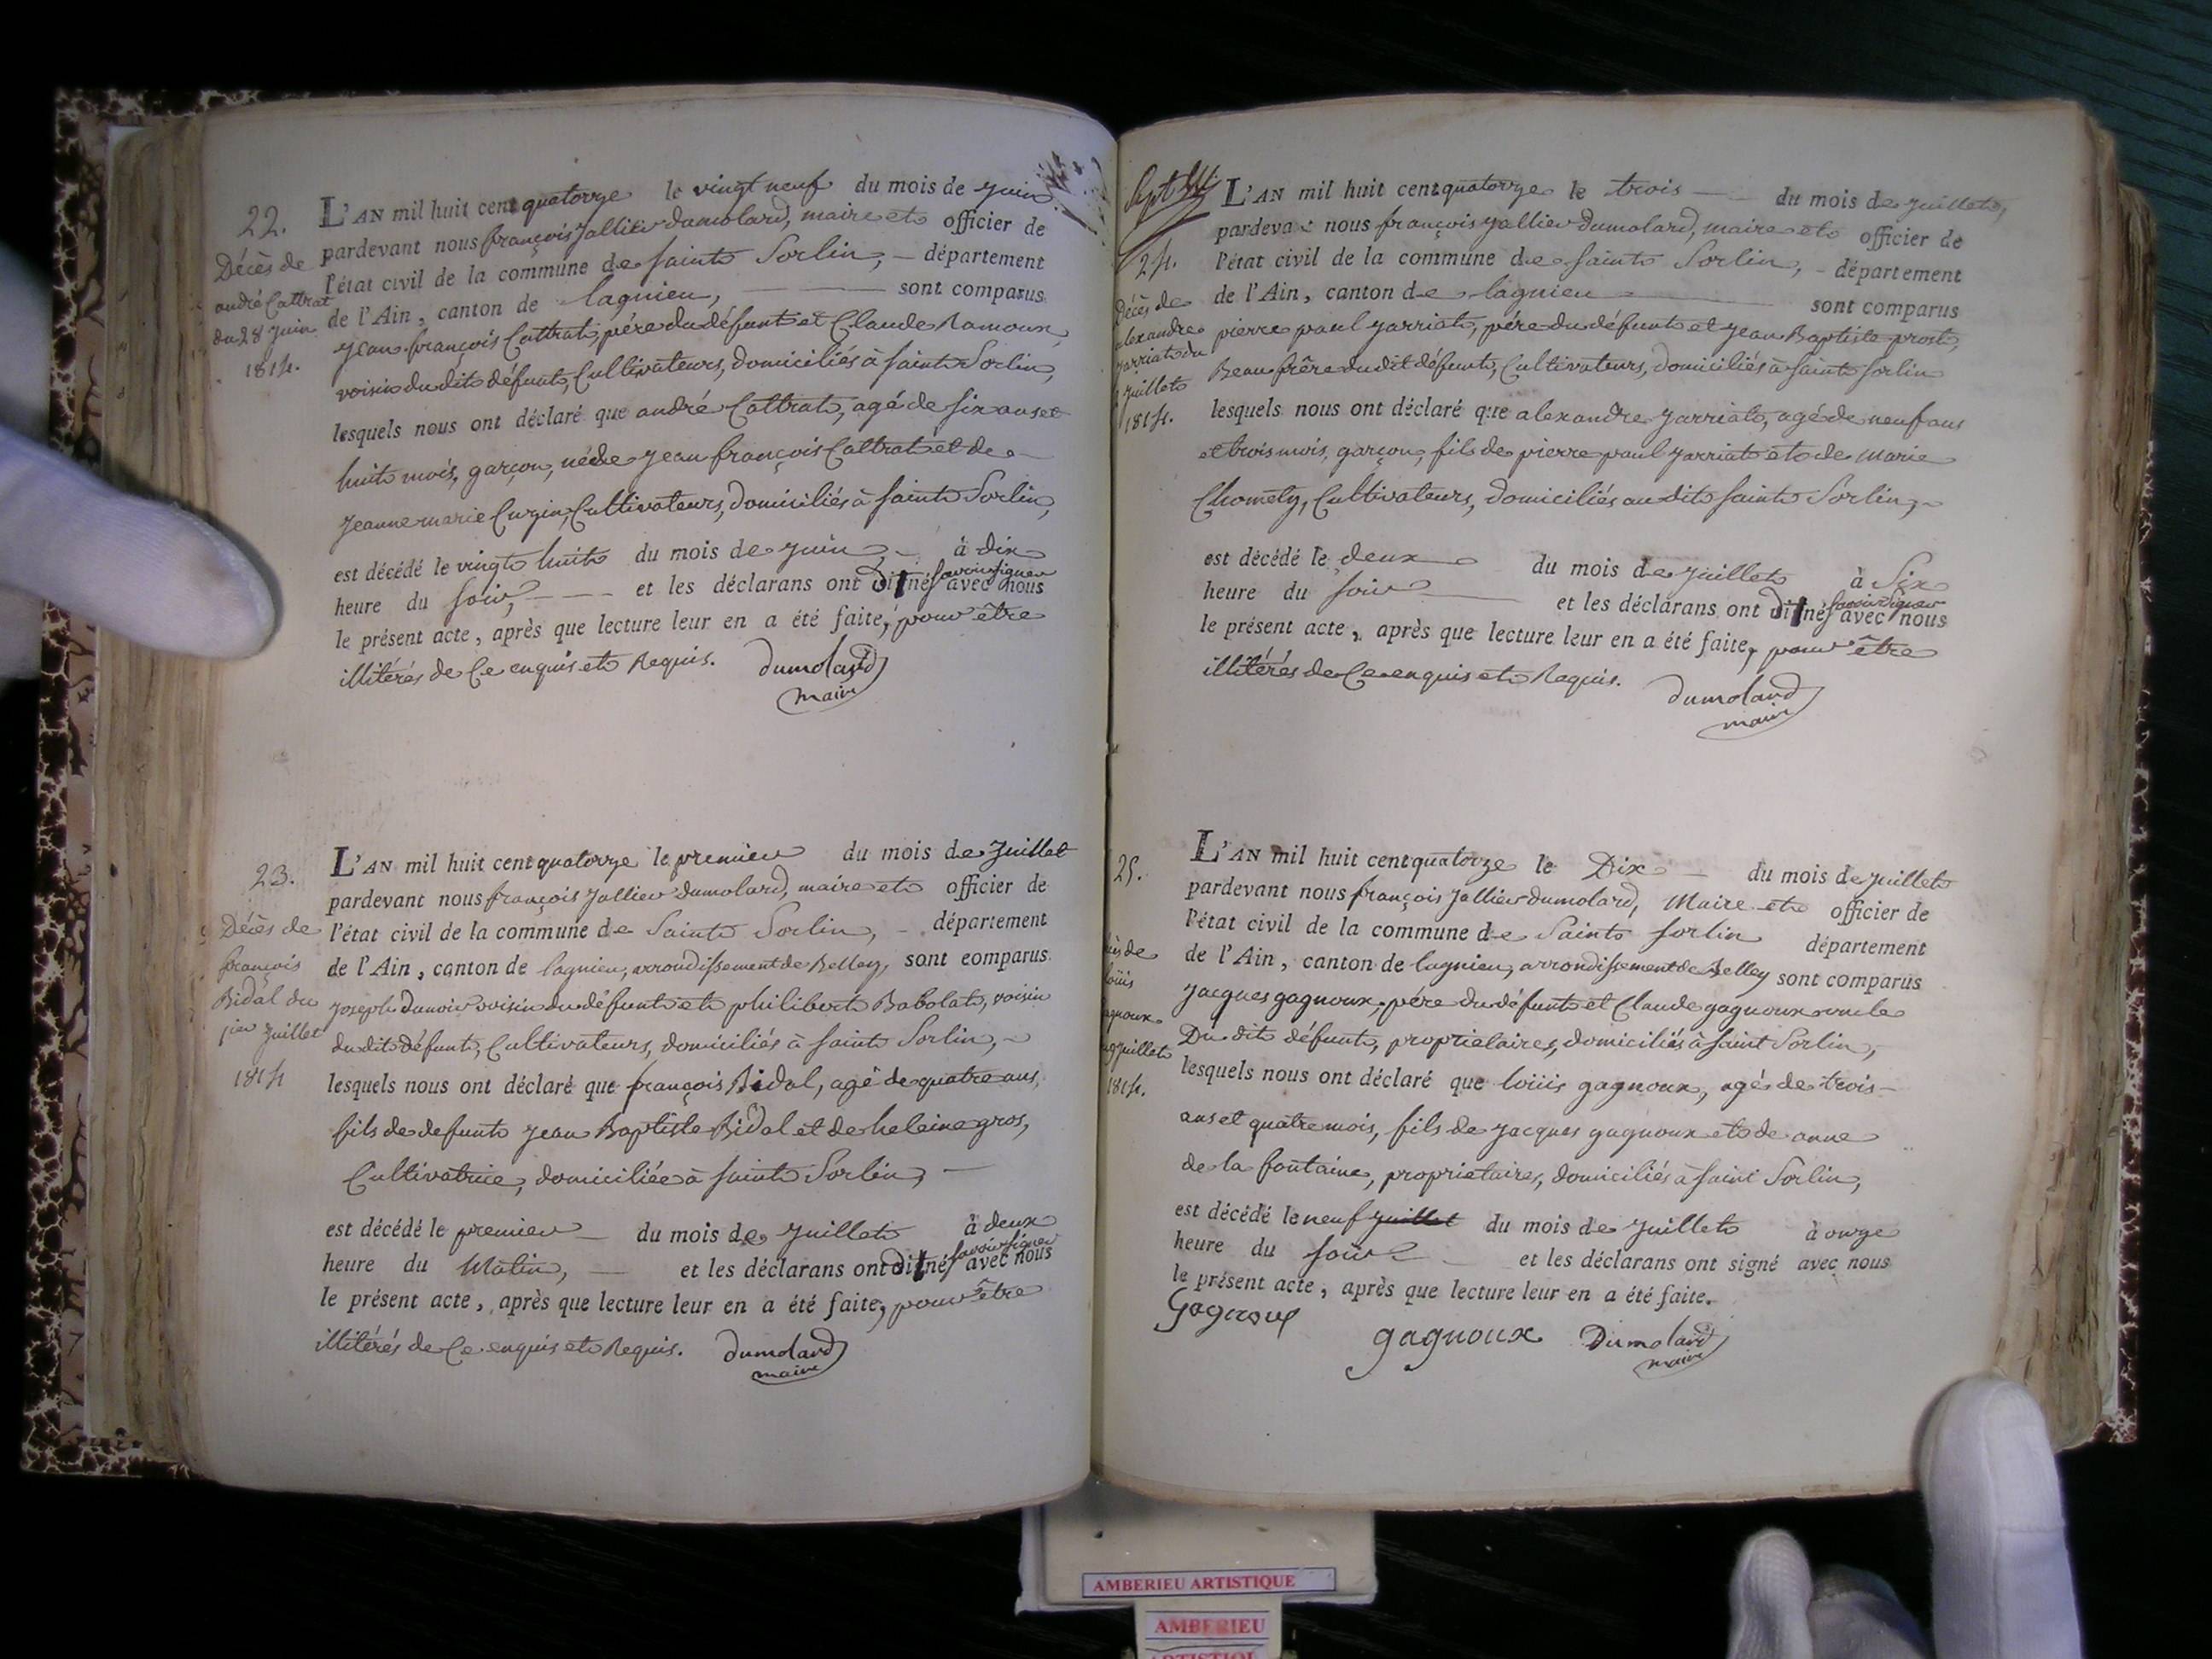 22.
Décès de
andré Cattrat
du 28 juin
1814.
L'AN mil huit cent quatorze le vingt neuf du mois de juin
pardevant nous françois Jallier dumolard, maire et officier de
l'état civil de la commune de saint Sorlin, - département
de l'Ain, canton de lagnieu, sont comparus
jean françois Cattrat, pére du défunt et Claude Ramoux,
voisin du dit défunt, Cultivateurs, domiciliés à saint Sorlin,
lesquels nous ont déclaré que andré Cattrat, agé de six ans et
huit mois, garçon, né de jean françois Cattrat et de
jeanne marie Curzin, Cultivateurs, domiciliés à saint Sorlin,
est décédé le vingt huit du mois de juin, à dix
heure du soir, et les déclarans ont dit né savoir signer avec nous
le présent acte, après que lecture leur en a été faite, pour être
illitérés de Ce enquis et Requis. dumolard
maire
23.
Décès de
françois
Bidal du
1er juillet
1814
L'AN mil huit cent quatorze le premier du mois de Juillet
pardevant nous françois Jallier dumolard, maire et officier de
l'état civil de la commune de Saint Sorlin, - département
de l'Ain, canton de lagnieu, arrondissement de Belley, sont comparus
joseph dunoir voisin du défunt et philibert Babolat, voisin
du dit défunt, Cultivateurs, domiciliés à saint Sorlin,
lesquels nous ont déclaré que françois Bidal, agé de quatre ans,
fils de defunt jean Baptiste Bidal et de heleine gros,
Cultivatrice, domiciliée à saint Sorlin,
est décédé le premier du mois de juillet à deux
heure du Matin, et les déclarans ont dit né savoir signer avec nous
le présent acte, après que lecture leur en a été faite, pour être
illitérés de Ce enquis et Requis. dumolard
maire
24.
Décès de
alexandre
jarriat du
juillet
1814.
L'AN mil huit cent quatorze le trois du mois de juillet,
pardevant nous françois jallier dumolard, maire et officier de
l'état civil de la commune de saint Sorlin, - département
de l'Ain, canton de lagnieu sont comparus
pierre paul jarriat, pére du défunt et jean Baptiste prost,
Beau frêre du dit défunt, Cultivateurs, domiciliés à saint sorlin
lesquels nous ont déclaré que alexandre jarriat, agé de neuf ans
et trois mois, garçon, fils de pierre paul jarriat et de marie
Chomety, Cultivateurs, domiciliés au dit saint Sorlin,
est décédé le deux du mois de juillet à Six
heure du soir et les déclarans ont dit né savoir signer avec nous
le présent acte, après que lecture leur en a été faite, pour être
illitérés de Ce enquis et Requis. dumolard
maire
25.
louis
juillet
1814.
L'AN mil huit cent quatorze le Dix du mois de juillet
pardevant nous françois Jallier dumolard, Maire et officier de
l'état civil de la commune de Saint sorlin département
de l'Ain, canton de lagnieu, arrondissement de Belley sont comparus
jacques gagnoux, pére du défunt et Claude gagnoux oncle
Du dit défunt, proprietaires, domiciliés à saint Sorlin,
lesquels nous ont déclaré que loüis gagnoux, agé de trois
ans et quatre mois, fils de jacques gagnoux et de anne
de la fontaine, proprietaires, domiciliés à saint Sorlin,
est décédé le neuf juillet du mois de juillet à onze
heure du soir et les déclarans ont signé avec nous
le présent acte, après que lecture leur en a été faite.
Gagnoux
gagnoux Dumolard
maire
AMBERIEU ARTISTIQUE
AMBERIEU
ARTISTIQUE